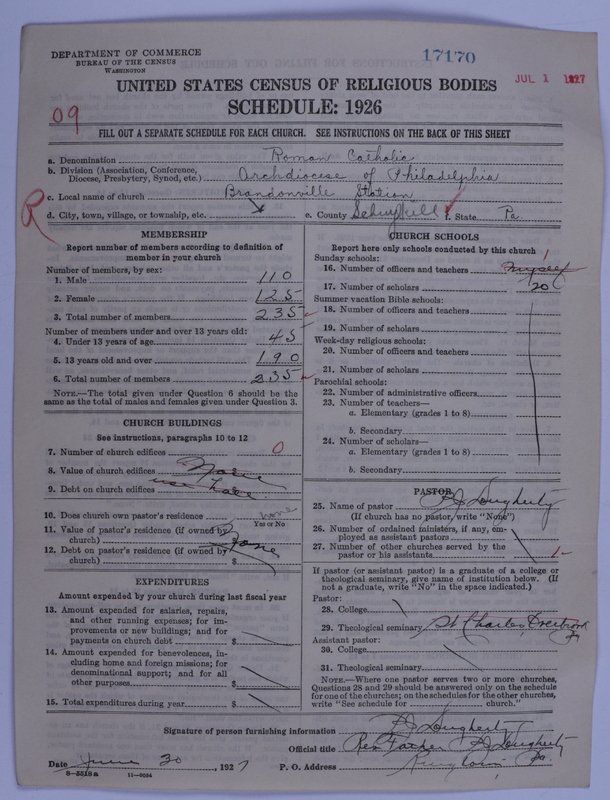 DEPARTMENT OF COMMERCE
BUREAU OF THE CENSUS
WASHINGTON
17170
JUL 1 1927
UNITED STATES CENSUS OF RELIGIOUS BODIES
SCHEDULE: 1926
09
FILL OUT A SEPARATE SCHEDULE FOR EACH CHURCH. SEE INSTRUCTIONS ON THE BACK OF THIS SHEET
a. Denomination Roman Catholic
b. Division (Association, Conference, Diocese, Presbytery, Synod, etc.) Archdiocese of Philadelphia
c. Local name of church Brandonville Station
R
d. City, town, village, or township, etc. x e. County Schuylkill f. State Pa.
MEMBERSHIP
Report number of members according to definition of
member in your church
Number of members, by sex:
1. Male 110
2. Female 125
3. Total number of members 235
Number of members under and over 13 years old:
4. Under 13 years of age 45
5. 13 years old and over 190
6. Total number of members 235
NOTE.—The total given under Question 6 should be the
same as the total of males and females given under Question 3.
CHURCH BUILDINGS
See instructions, paragraphs 10 to 12
7. Number of church edifices 0
8. Value of church edifices None
9. Debt on church edifices
10. Does church own pastor's residence None
Yes or No
11. Value of pastor's residence (if owned by
church)
12. Debt on pastor's residence (if owned by None
church) $
EXPENDITURES
Amount expended by your church during last fiscal year
13. Amount expended for salaries, repairs,
and other running expenses; for im-
provements or new buildings; and for
payments on church debt $
14. Amount expended for benevolences, in-
cluding home and foreign missions; for
denominational support; and for all
other purposes $
15. Total expenditures during year $
CHURCH SCHOOLS
Report here only schools conducted by this church
Sunday schools: 1
16. Number of officers and teachers myself
17. Number of scholars 20
Summer vacation Bible schools:
18. Number of officers and teachers
19. Number of scholars
Week-day religious schools:
20. Number of officers and teachers
21. Number of scholars
Parochial schools:
22. Number of administrative officers
23. Number of teachers—
a. Elementary (grades 1 to 8)
b. Secondary
24. Number of scholars—
a. Elementary (grades 1 to 8)
b. Secondary
PASTOR
25. Name of pastor Dougherty
(If church has no pastor, write "None")
26. Number of ordained ministers, if any, em-
ployed as assistant pastors
27. Number of other churches served by the
pastor or his assistants
If pastor (or assistant pastor) is a graduate of a college or
theological seminary, give name of institution below. (If
not a graduate, write "No" in the space indicated.)
Pastor:
28. College
29. Theological seminary St Charles Overbrook Pa
Assistant pastor:
30. College
31. Theological seminary
NOTE.—Where one pastor serves two or more churches,
Questions 28 and 29 should be answered only on the schedule
for one of the churches; on the schedules for the other churches,
write "See schedule for church."
Signature of person furnishing information Dougherty
Official title Rev Father Dougherty
Date June 30, 1927 P. O. Address Ringtown Pa.
8-5518a 11-9034